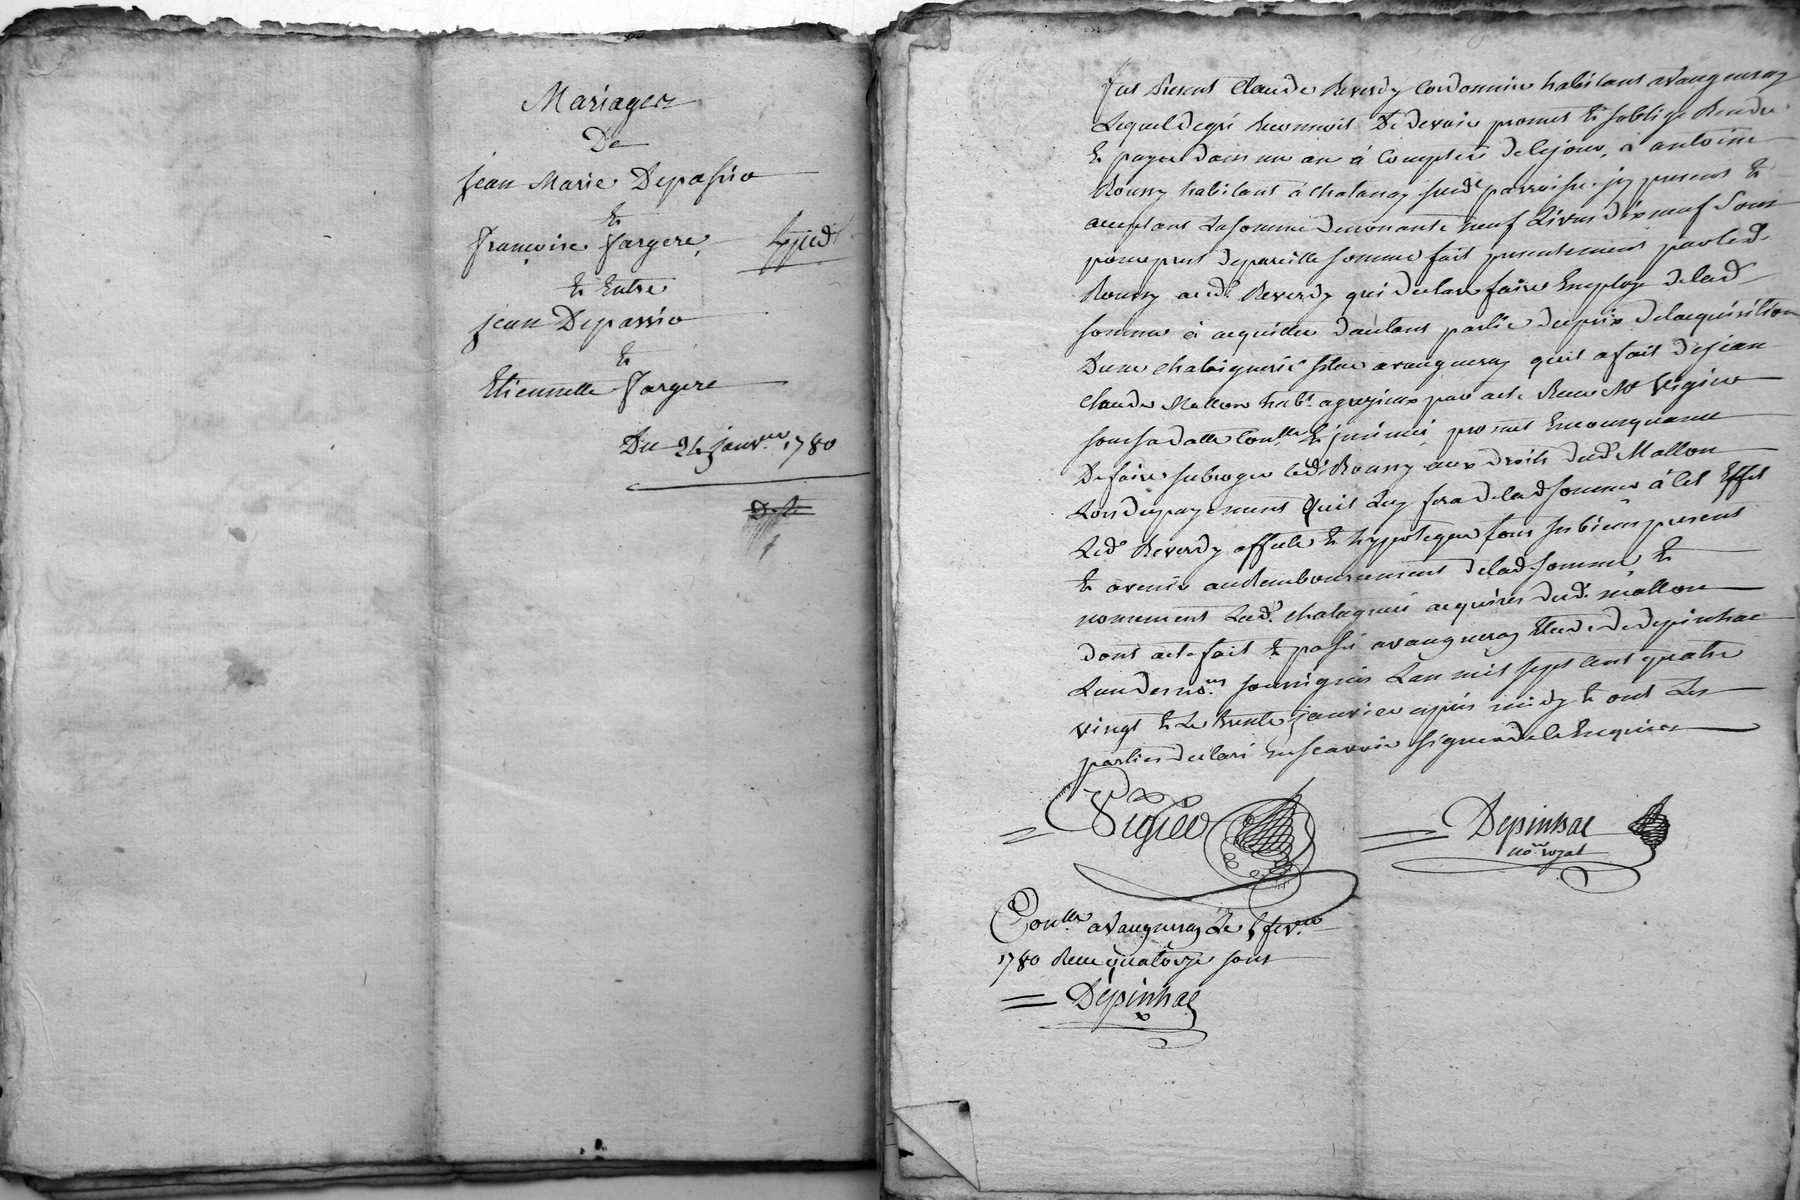 Mariages
De
jean Marie Depassio
Et
françoise fargere,
Et Entre
jean Depassio
Et
Etiennette fargere
Du 24 janv.er 1780
fut Present Claude Reverdy Cordonnier habitant a Vaugneray
Lequel degré Reconnoit Et devoir promet Et soblige Rendre
Et payer dans un an à Compter de ce jour, a antoine
Roussy habitant à Chalanay susd.e parroisse icy present Et
acceptant La somme de nonante neuf Livres dix neuf Sous
pour prest de pareille somme fait presentement par led.
Roussy aud. Reverdy qui declare faire Employ de lad.
somme à acquitter d'autant partie du prix de l'acquisition
D'une chataignerie sitüe a vaugneray qu'il a fait de jean
Claude Mallon hab.t a grezieux par acte Recu M.e Vigier
sous sa datte Con.llé Et insinué, promet En consequence
De faire subroger led. Roussy aux droits dud. Mallon
Lors du payement Quil Luy fera de lad. somme à Cet Effet
Led. Reverdy affecte Et hypoteque tous ses biens present
Et avenir au Remboursement de lad. somme Et
nomement Lad. chatagnerie acquises dud. mallon
dont acte fait Et passé a vaugneray Etude de depinhac
L'un des no.res soussignés L'an mil sept cent quatre
vingt Et Le trente janvier après midy Et ont Les
parties declaré ne scavoir signer de ce Enquises
Vigier
Depinhac
no.re royal
Con.llé a Vaugneray Le 5 fev.er
1780 Recu quatorze sous
Depinhac